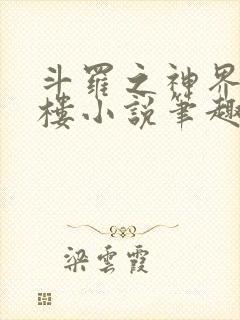 斗羅之神界
樓小說筆趣
梁雲霞